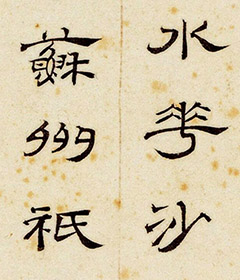 水華沙
蘇州祇